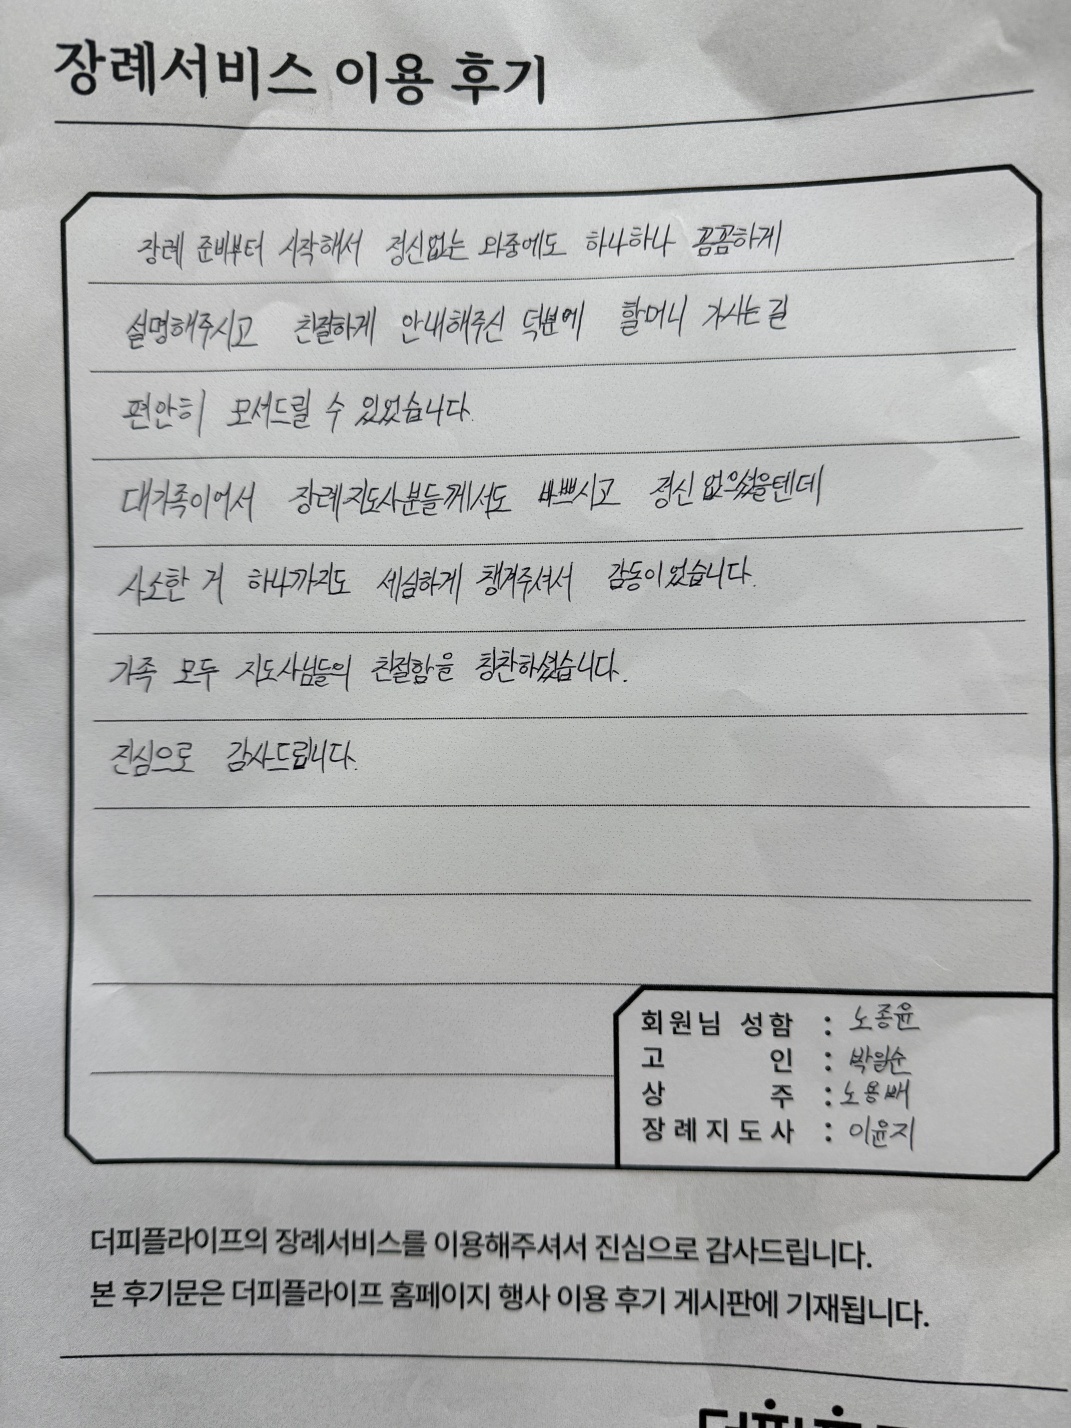 장례서비스 이용 후기
장례 준비부터 시작해서 정신없는 와중에도 하나하나 꼼꼼하게
설명해주시고 친절하게 안내해주신 덕분에 할머니 가시는길
편안히 모셔드릴 수 있었습니다.
대가족이어서 장례지도사분들께서도 바쁘시고 정신 없으셨을텐데
사소한 거 하나까지도 세심하게 챙겨주셔서 감동이었습니다.
가족 모두 지도사님들의 친절함을 칭찬하셨습니다.
진심으로 감사드립니다.
회원님 성함 : 노종윤
고 인 : 박일순
상 주 : 노용배
장례지도사 : 이윤지
더피플라이프의 장례서비스를 이용해주셔서 진심으로 감사드립니다.
본 후기문은 더피플라이프 홈페이지 행사 이용 후기 게시판에 기재됩니다.